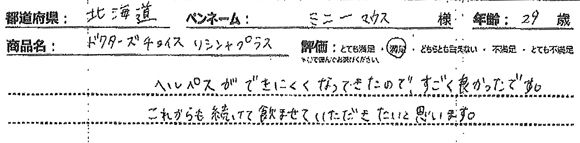 都道府県： 北海道 ペンネーム： ミニーマウス 様 年齢：29 歳
商品名： ドクターズチョイス リシンプラス 評価：とても満足 ・ 満足 ・ どちらとも言えない ・ 不満足 ・ とても不満足
ヘルペスができにくくなってきたので、すごく良かったです。
これからも続けて飲ませていただきたいと思います。